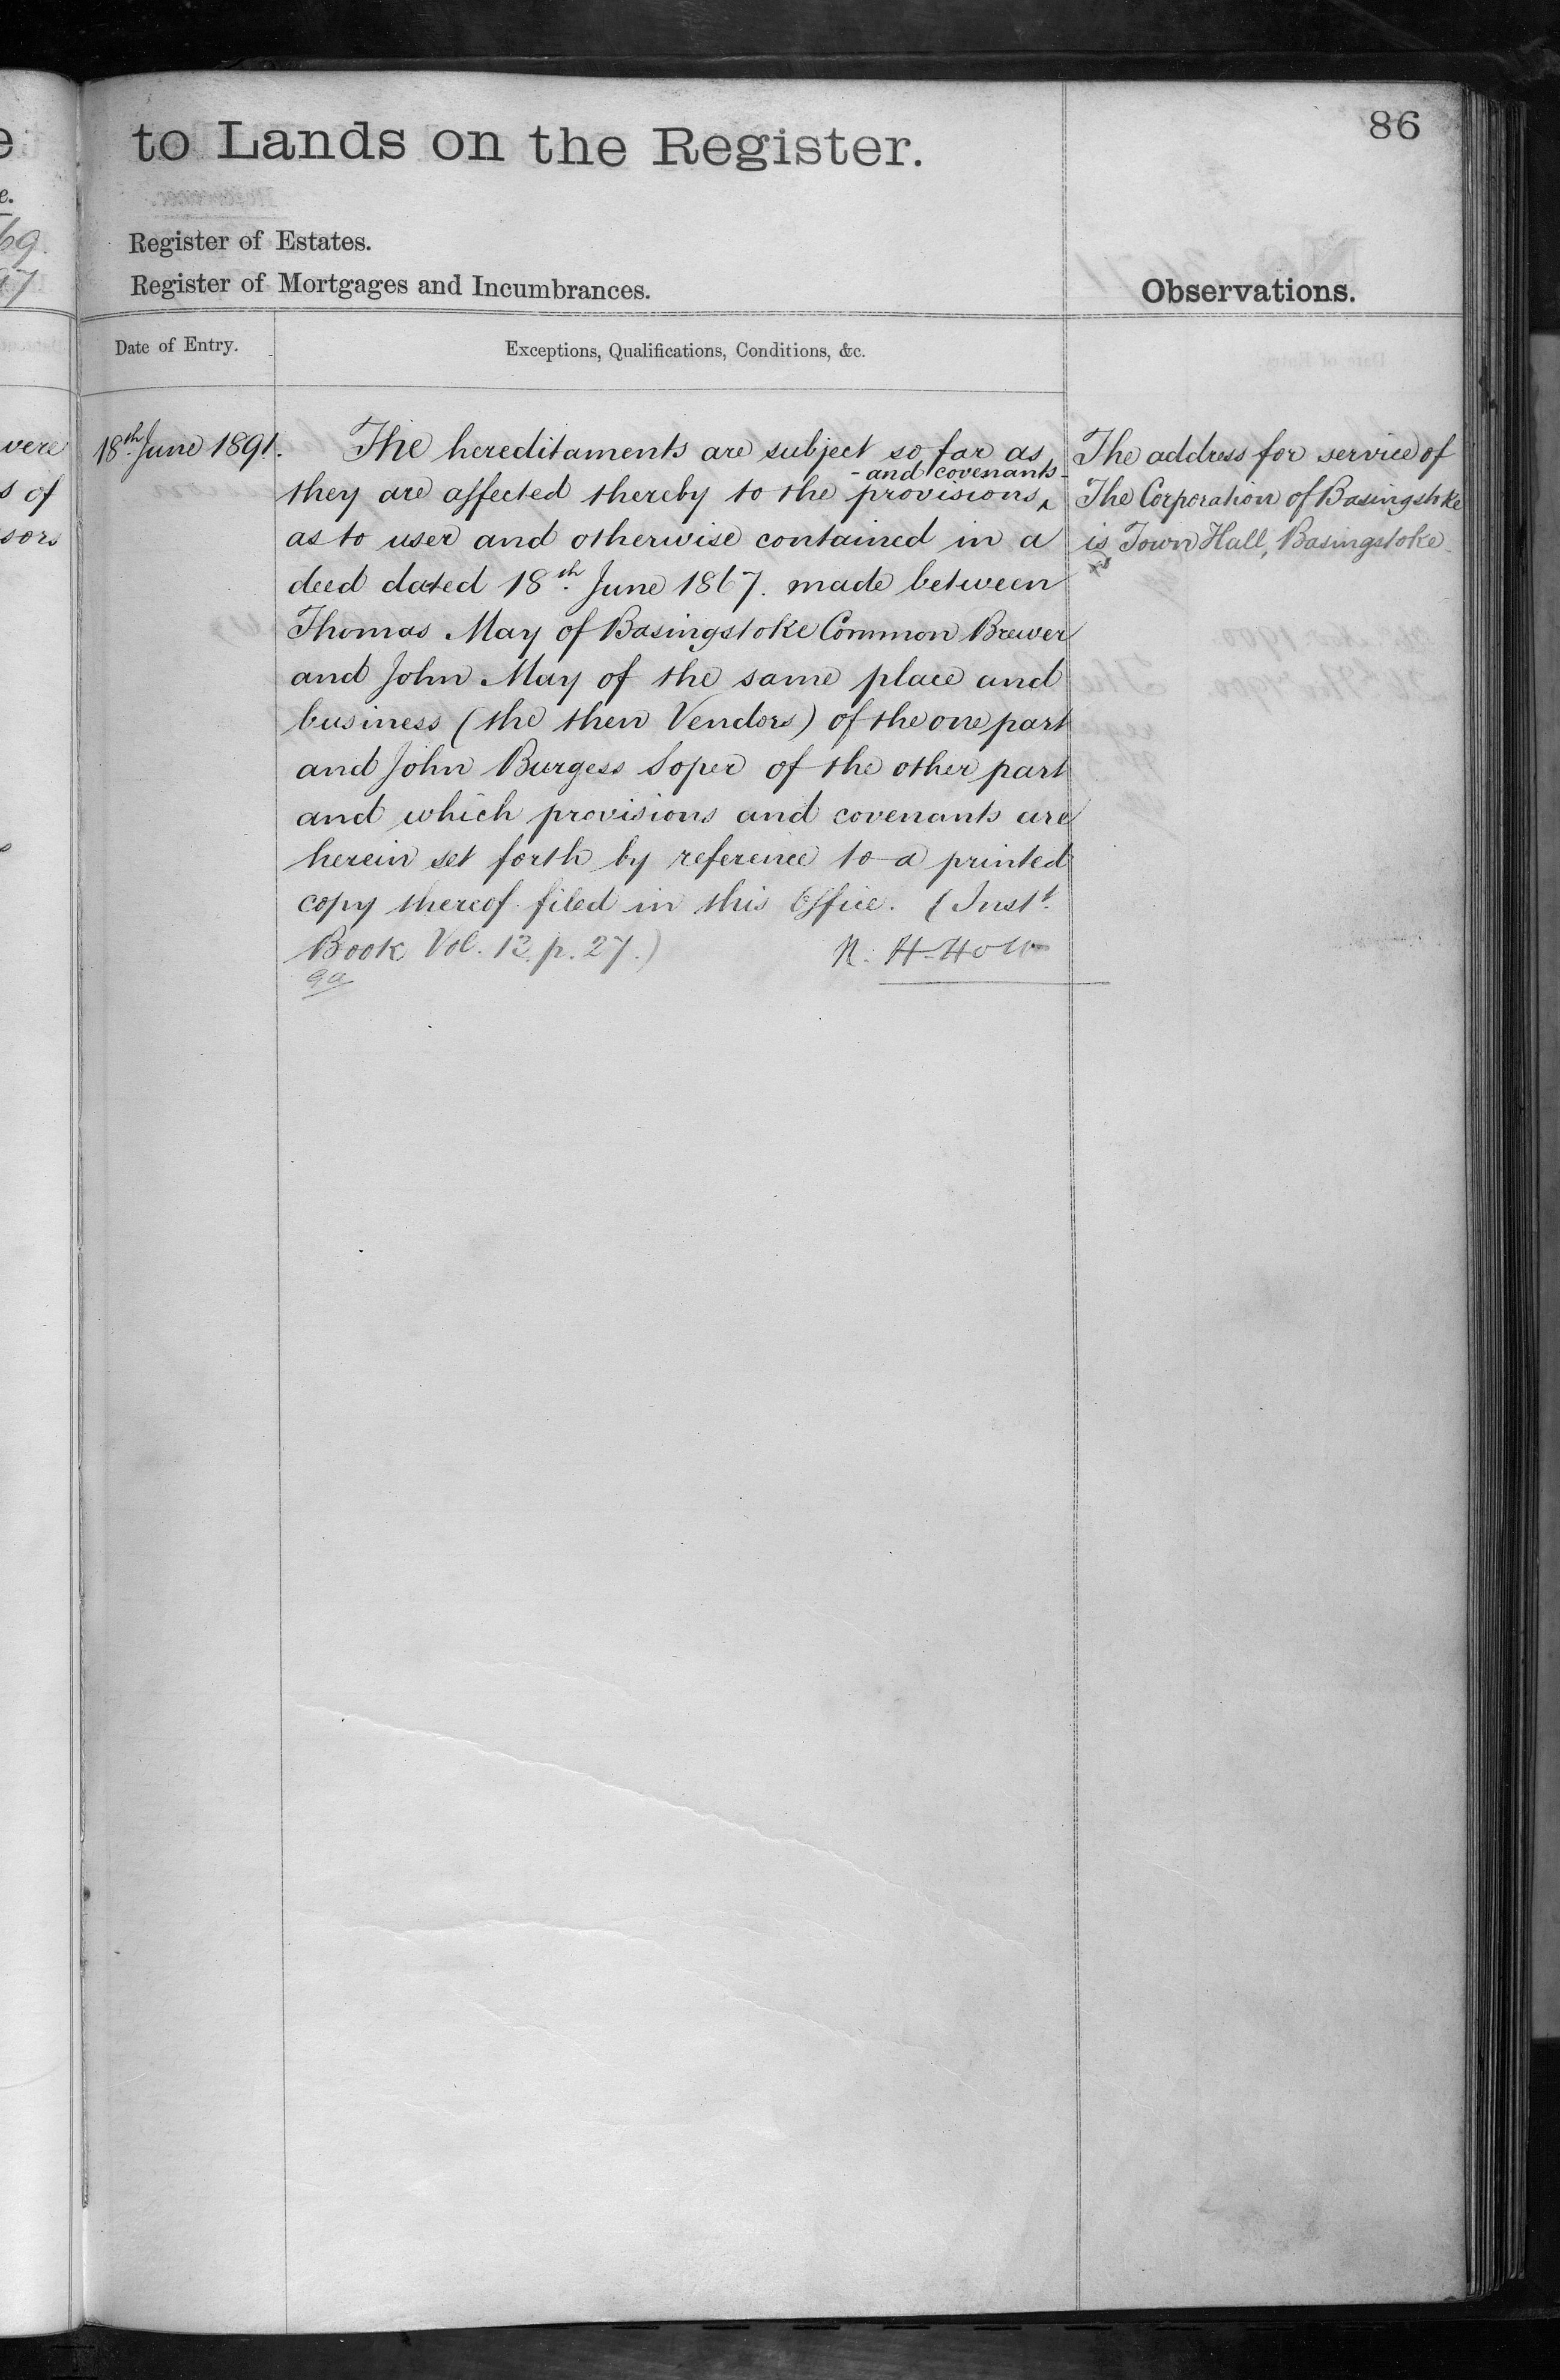 86
to Lands on the Register.
Register of Estates.
Register of Mortgages and Incumbrances.
Observations.
Date of Entry.
Exceptions, Qualifications, Conditions, &c.
18th June 1891.
The hereditaments are subject so far as
- and covenants -
they are affected thereby to the provisions ‸
as to user and otherwise contained in a
deed dated 18th June 1867. made between
Thomas May of Basingstoke Common Brewer
and John May of the same place and
business (the then Vendors) of the one part
and John Burgess Soper of the other part
and which provisions and covenants are
herein set forth by reference to a printed
copy thereof filed in this Office. (Instt.
Book Vol. 12. p. 27.)
The address for service of
The Corporation of Basingstoke
is Town Hall, Basingstoke.
e
e.
69.
97
vere
s of
sors